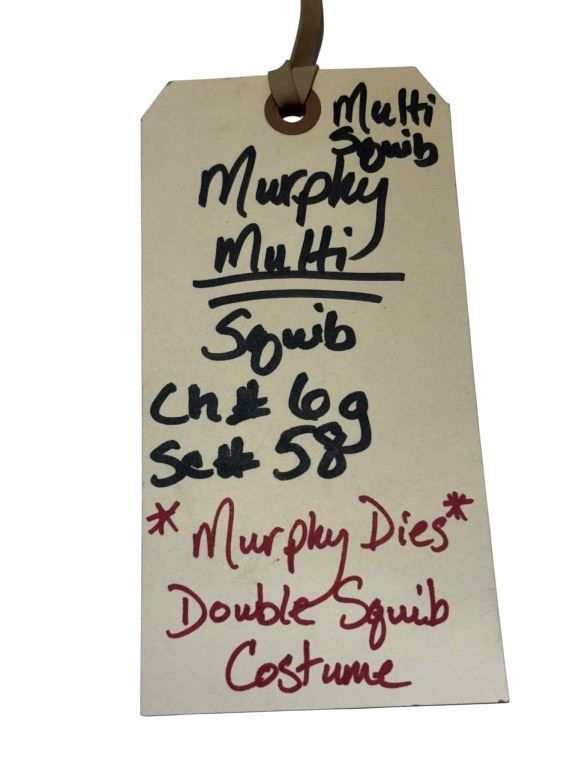 Multi
Squib
Murphy
Multi
Squib
Ch# 6g
Sc# 58
*Murphy Dies*
Double Squib
Costume